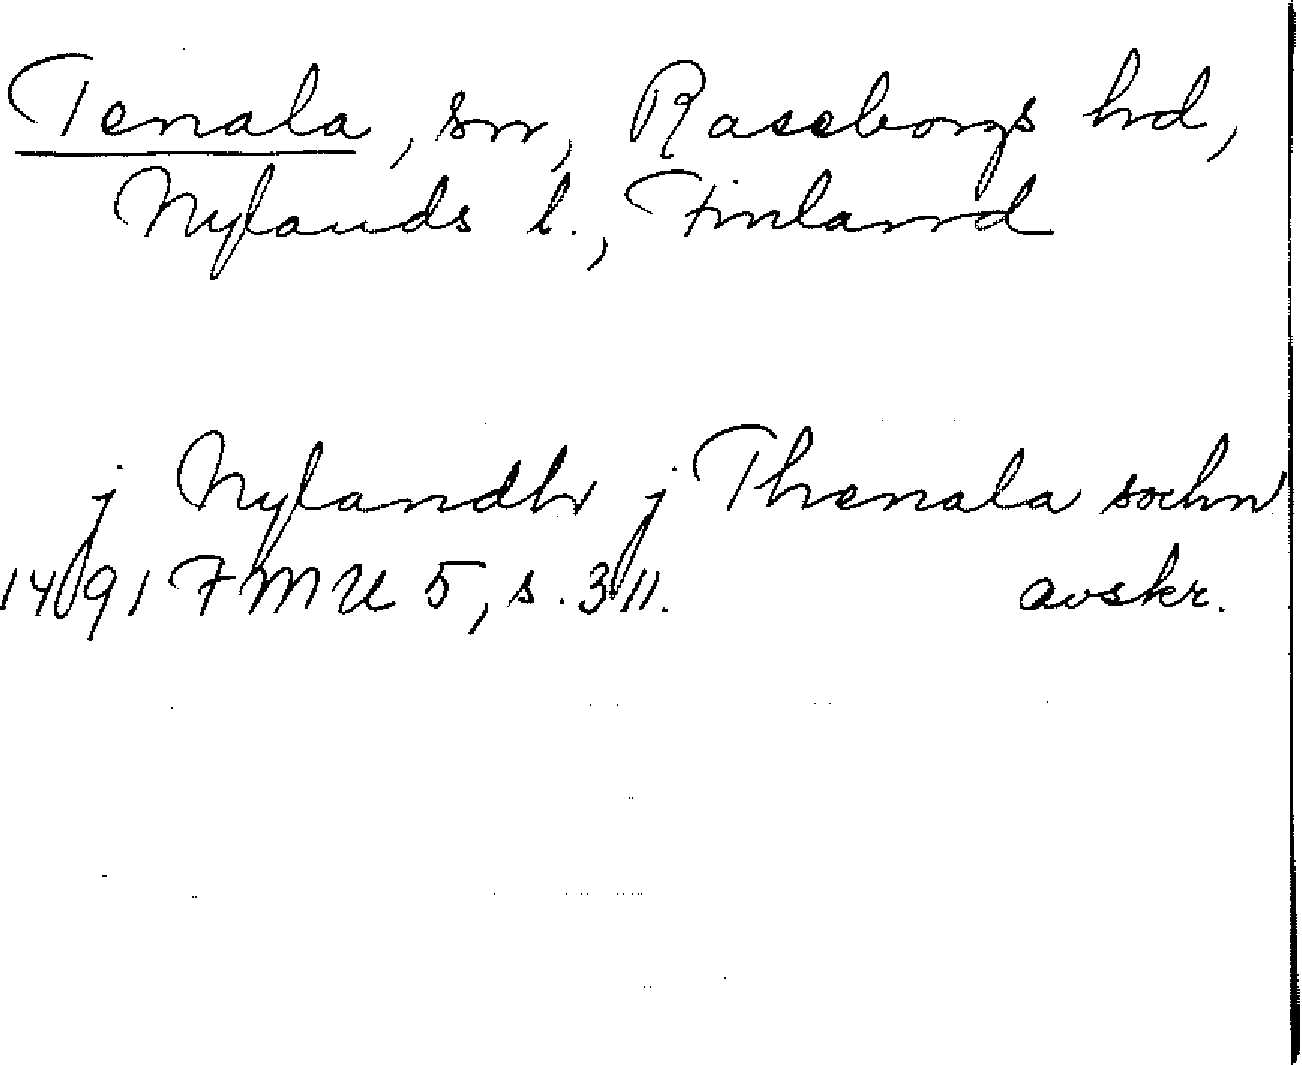 Tenala, sn, Raseborgs hd,
Nylands l., Finland
j Nylandh j Thenala sochn
1491 FMU 5, s. 311. avskr.